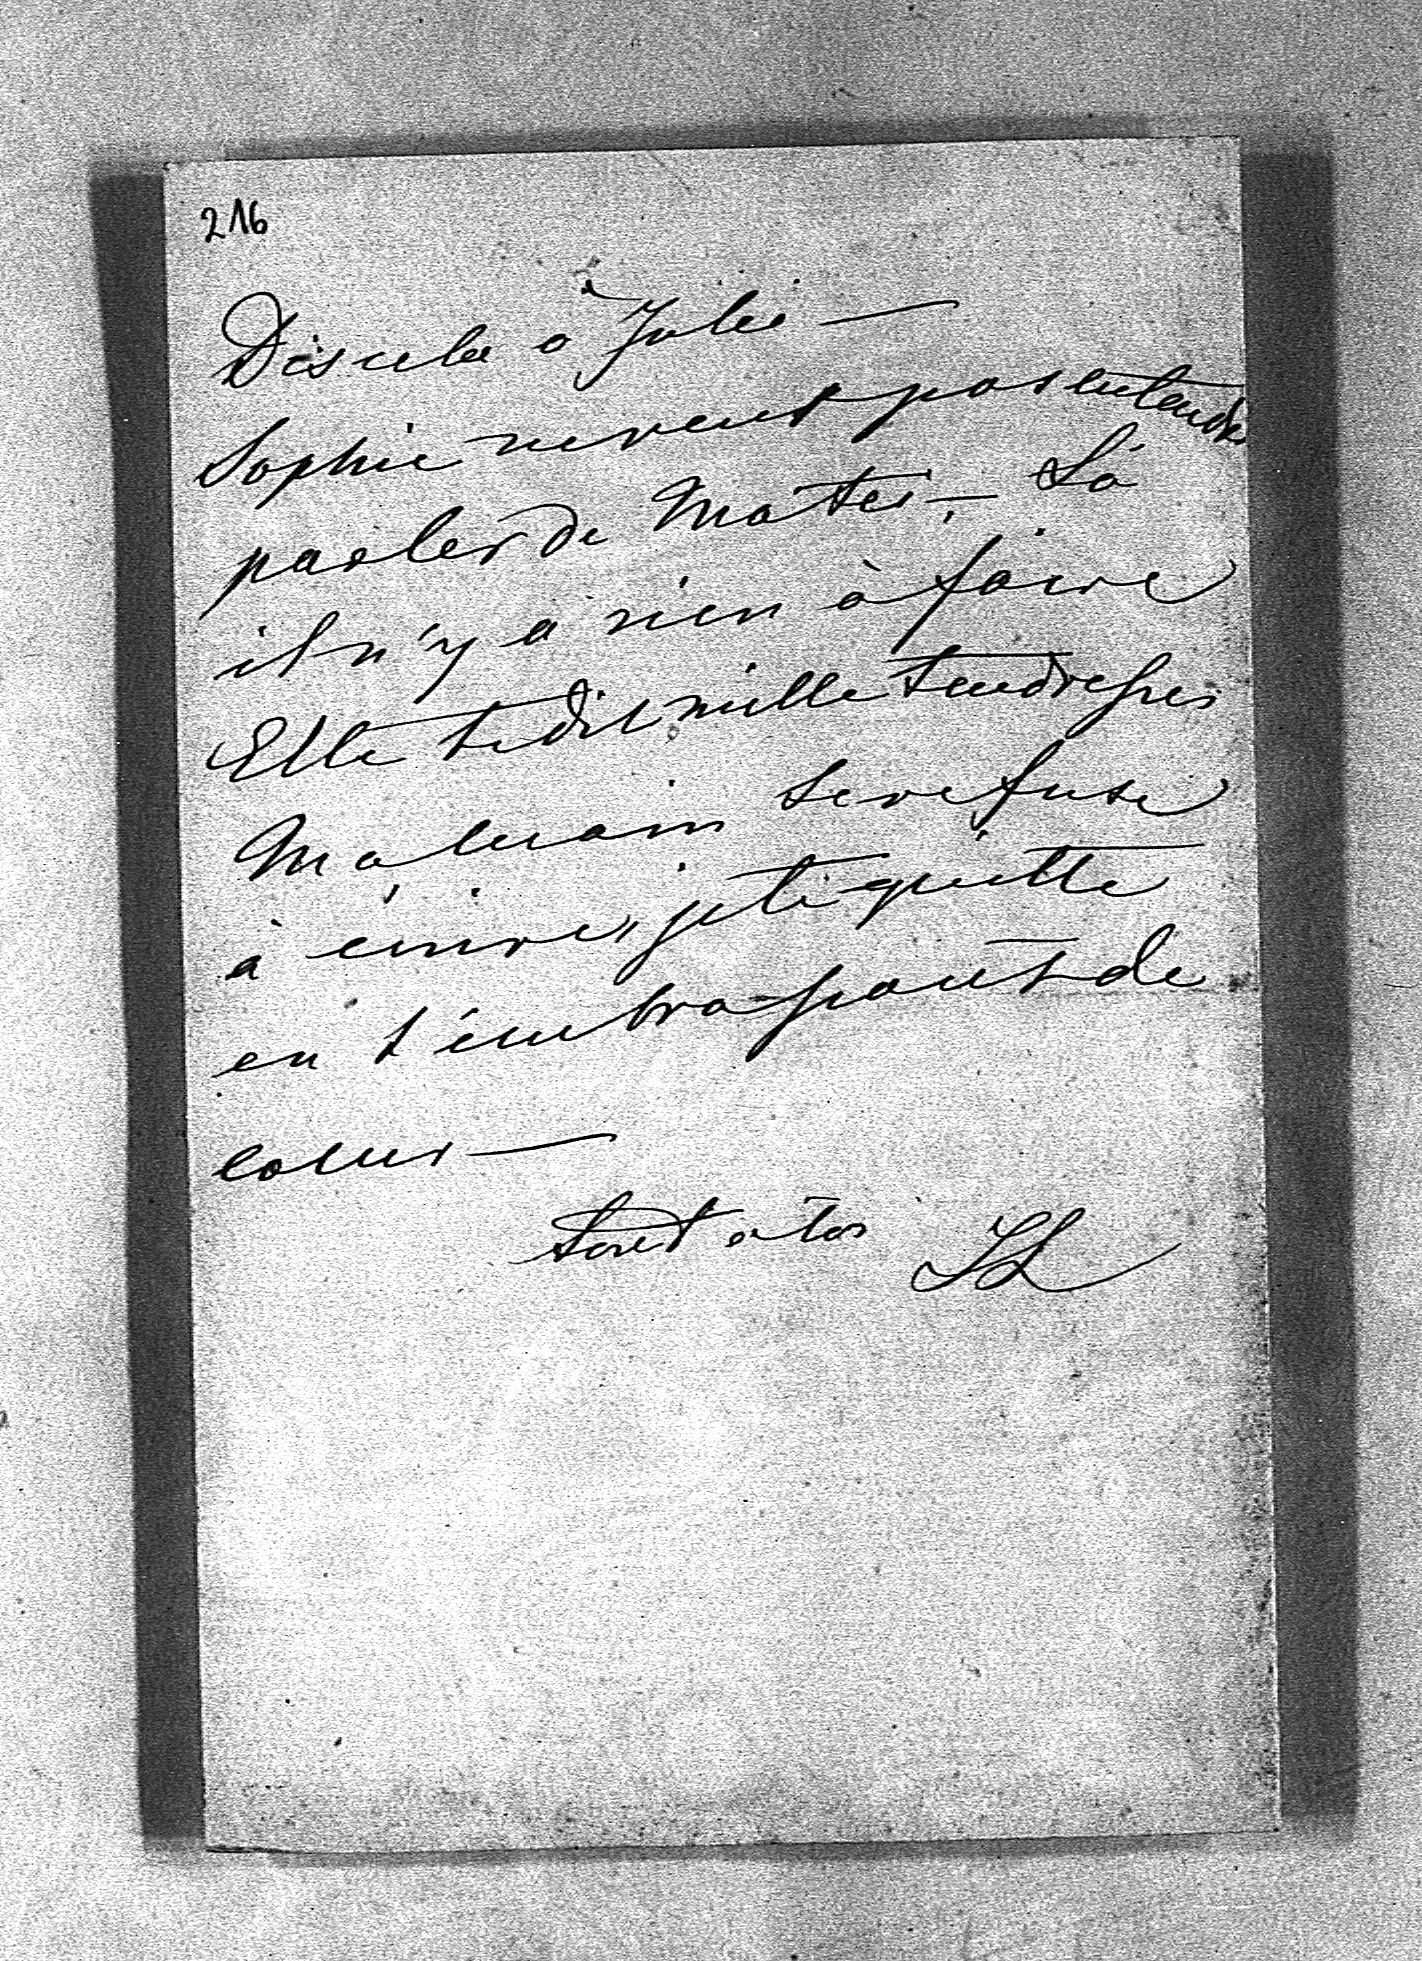 216
Dis cela à Julie —
Sophie ne veut pas entendre
parler de Mates, — Là
il n'y a rien à faire
Elle te dit mille tendresses
Ma main se refuse
à écrire, je te quitte
en t'embrassant de
coeur —
tout à toi JL